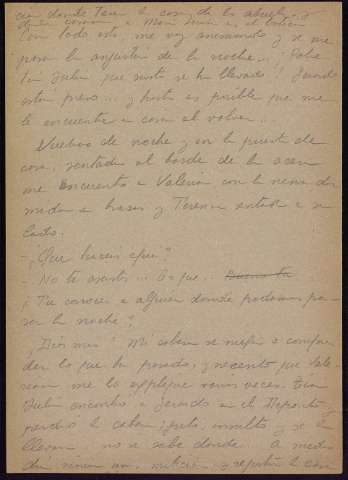 aun donde tiene la casa de los abuelos
Con todo esto, me voy animando y se me
pasa la angustia de la noche... ¡Pobre
tía Julia que susto se ha llevado! Gerardo
estará preso... y hasta es posible que me
lo encuentre en casa al volver.
Vuelvo de noche y en la puerta de
casa, sentada al borde de la acera
me encuentro a Valeria con la nena dor
mida en brazos y Teresa sentada a su
lado.
- ¿Que haceis aqui?
- No te asustes... Es que... Buena ta
¿Tu conoces a alguien donde podamos pa-
sar la noche?
¡Dios mio! Mi cabeza se niega a compren
der lo que ha pasado, y necesito que Vale-
ria me lo explique varias veces.
Julia encontró a Gerardo en el Deposito y
perdió la cabeza, gritó, insultó y se la
llevan no se sabe donde... A medio
dia unos milicianos registran la casa